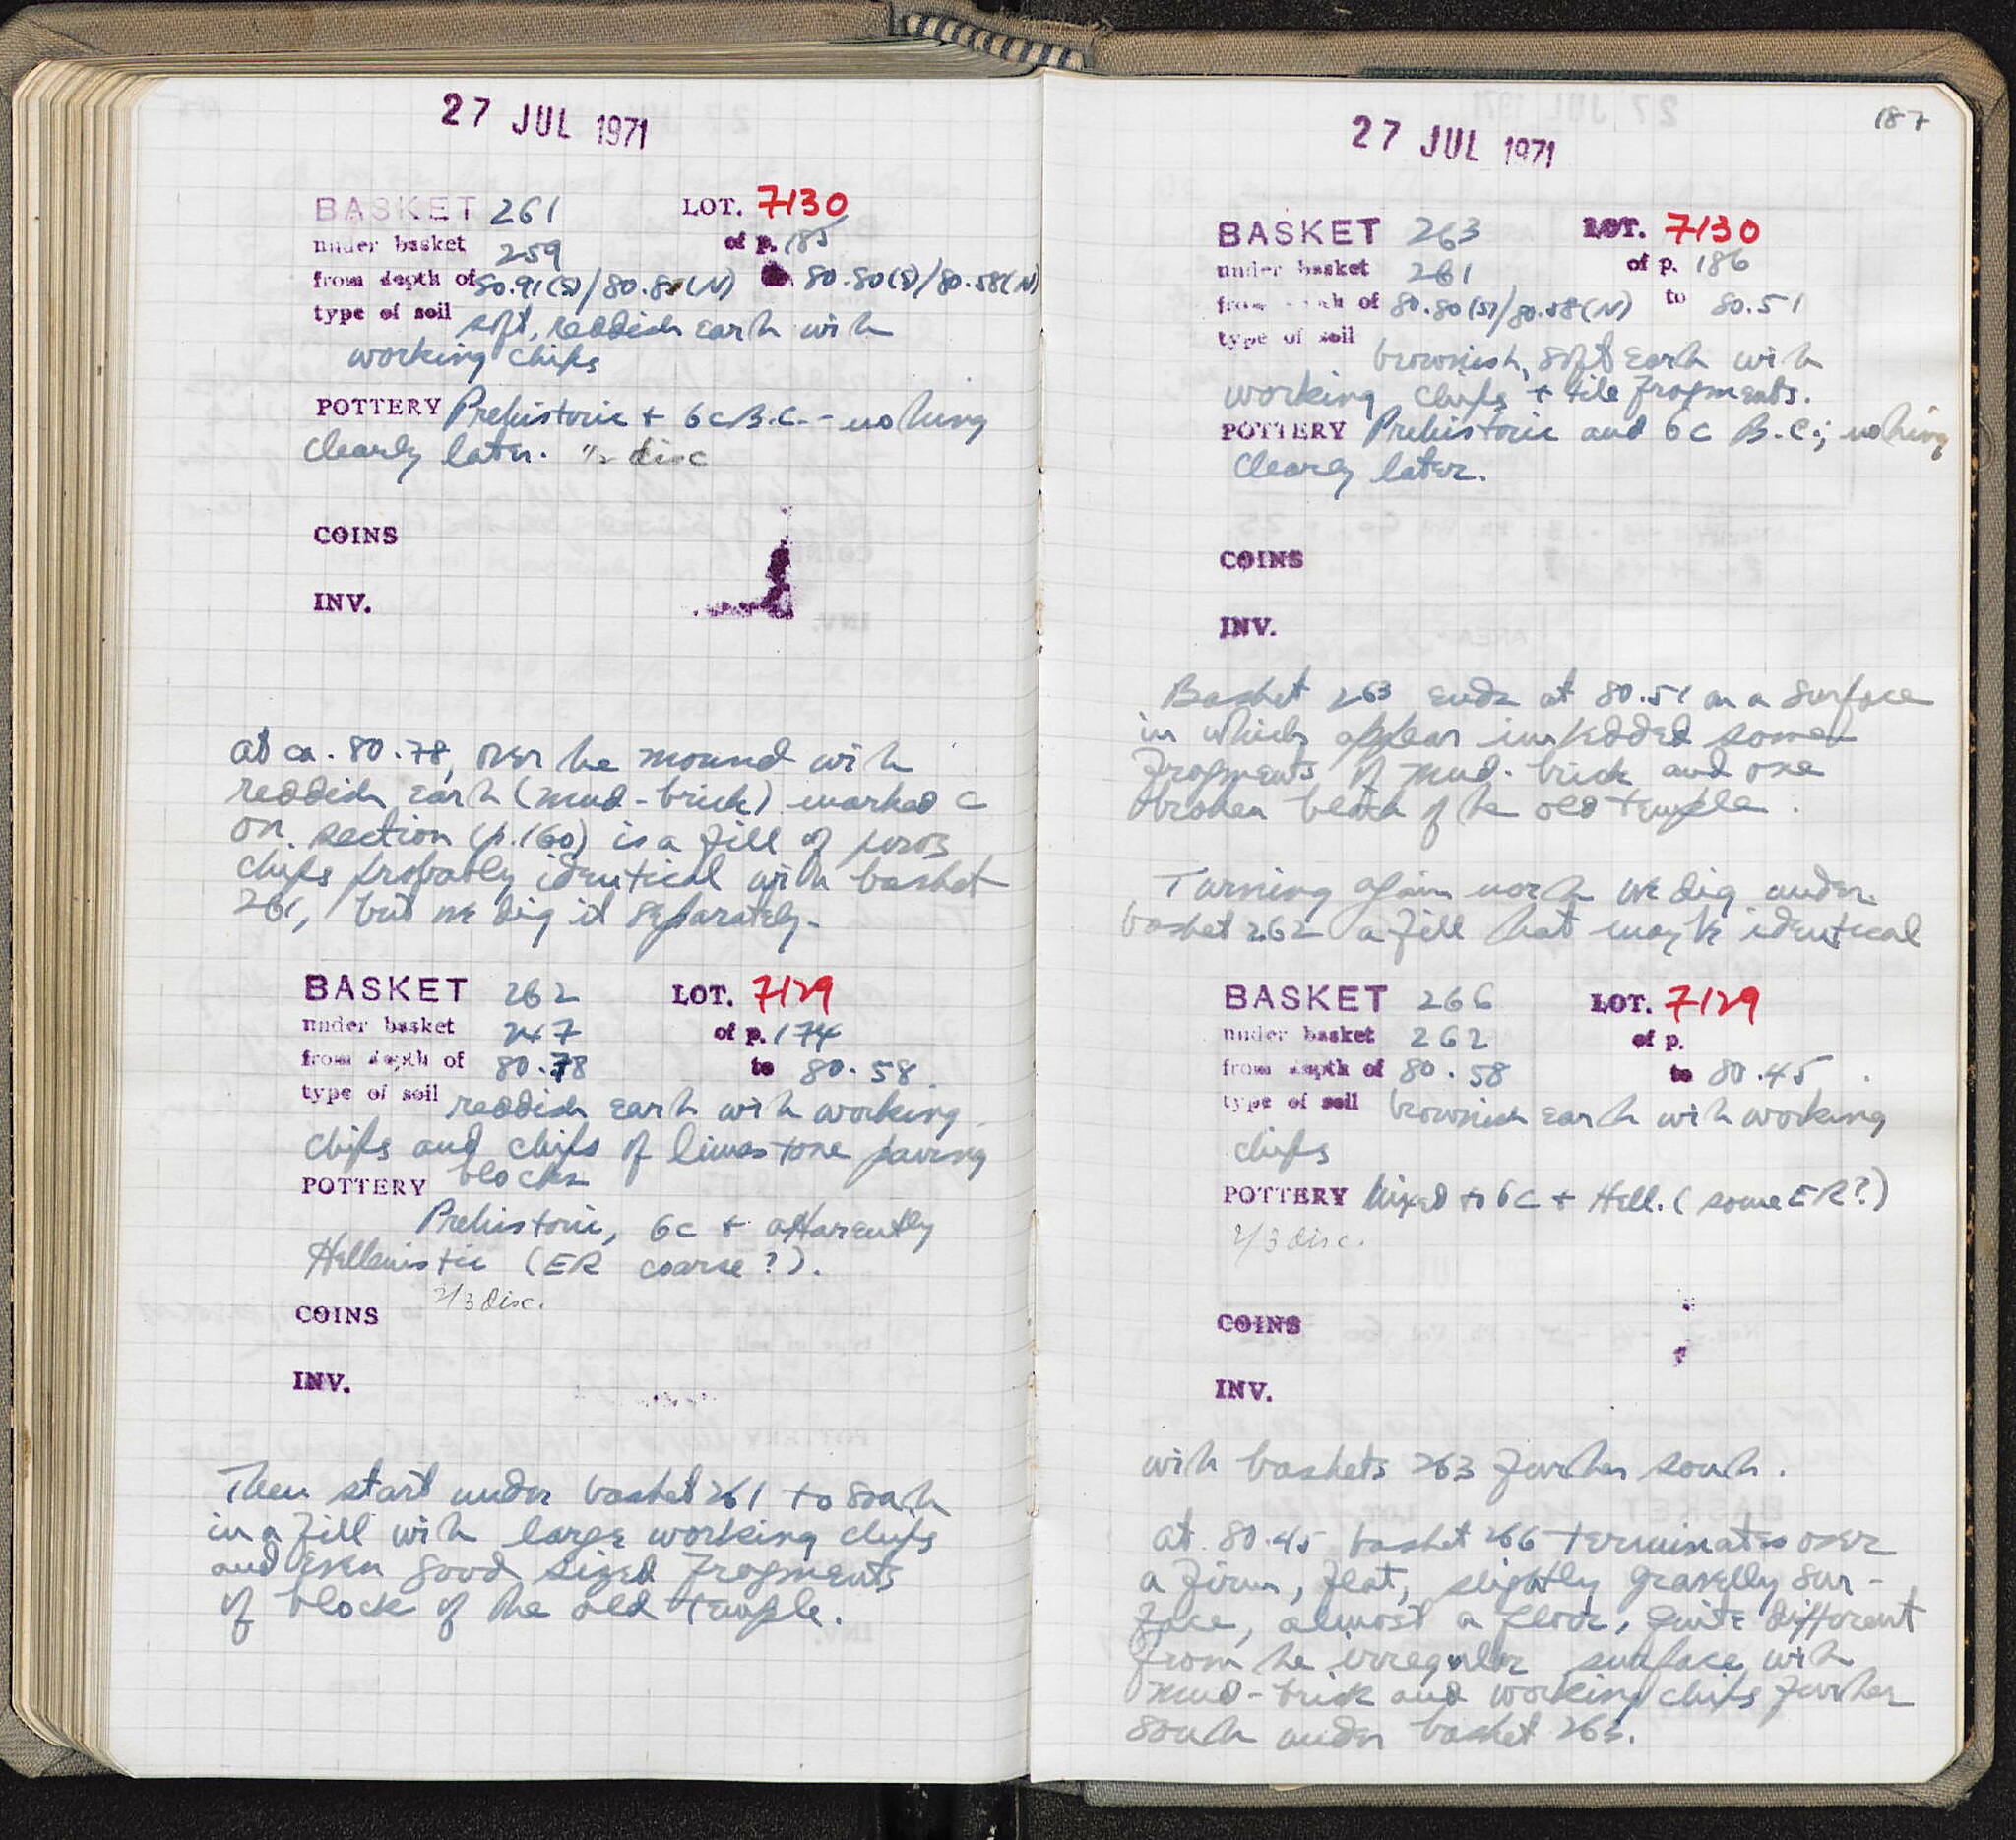 27 JUL 1971
BASKET 261 LOT. 7130
under basket 259 of p. 185
from depth of 80.91(S)/80.85(N) to 80.80(S)/80.58(N)
type of soil soft, reddish earth with
working chips
POTTERY Prehistoric + 6c B.C. - nothing
clearly later. 1/2 disc
COINS
INV.
at ca. 80.78, over the mound with
reddish earth (mud-brick) marked C
on section (p. 160) is a fill of poros
chips probably identical with basket
261, but we dig it separately-
BASKET 262 LOT. 7129
under basket 247 of p. 174
from depth of 80.78 to 80.58.
type of soil reddish earth with working
chips and chips of limestone paving
blocks
POTTERY
Prehistoric, 6c + apparently
Hellenistic (ER coarse?).
2/3 disc.
COINS
INV.
Then start under basket 261 to south
in a fill with large working chips
and even good sized fragments
of block of the old temple.
187
27 JUL 1971
BASKET 263 LOT. 7130
under basket 261 of p. 186
from depth of 80.80(S)/80.58(N) to 80.51
type of soil brownish, soft earth with
working chips + tile fragments.
POTTERY Prehistoric and 6c B.C.; nothing
clearly later.
COINS
INV.
Basket 263 ends at 80.51 on a surface
in which appear imbedded some
fragments of mud-brick and one
broken block of the old temple.
Turning again north we dig under
basket 262 a fill that may be identical
BASKET 266 LOT. 7129
under basket 262 of p.
from depth of 80.58 to 80.45.
type of soil brownish earth with working
chips
POTTERY Mixed to 6c + Hell. (some ER?)
2/3 disc.
COINS
INV.
with baskets 263 further south.
at 80.45 basket 266 terminates over
a firm, flat, slightly gravelly sur-
face, almost a floor, quite different
from the irregular surface with
mud-brick and working chips further
south under basket 263.